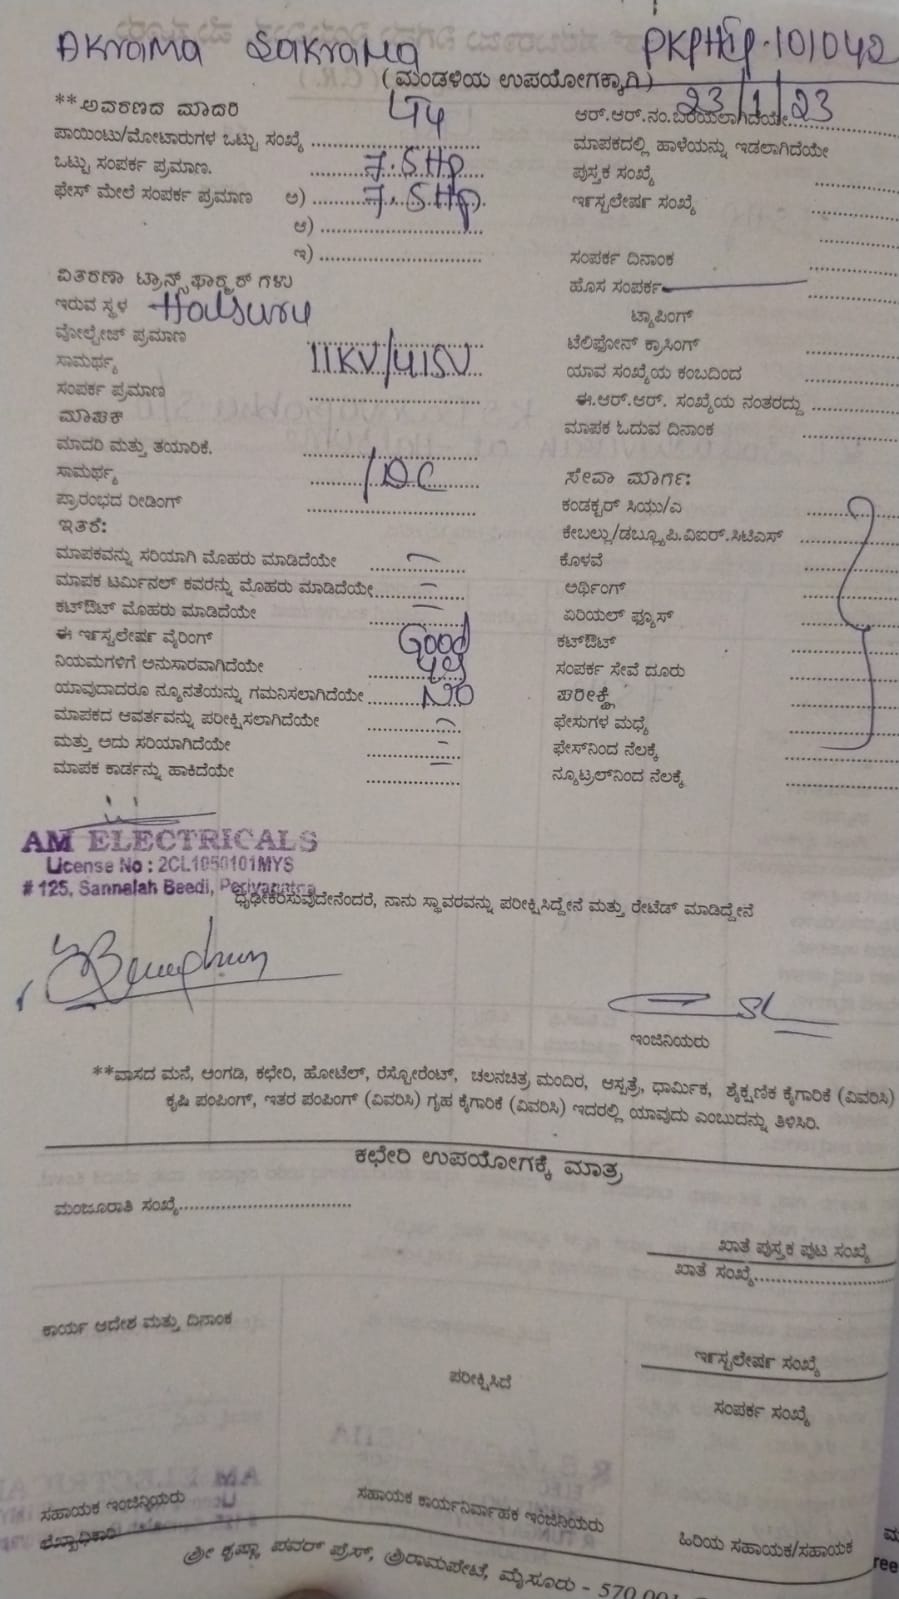 Akrama Sakrama PKPHEP.101042
(ಮಂಡಳಿಯ ಉಪಯೋಗಕ್ಕಾಗಿ)
23/1/23
**ಆವರಣದ ಮಾದರಿ
ಪಾಯಿಂಟು/ಮೋಟಾರುಗಳ ಒಟ್ಟು ಸಂಖ್ಯೆ
ಒಟ್ಟು ಸಂಪರ್ಕ ಪ್ರಮಾಣ. 7.5HP
ಫೇಸ್ ಮೇಲೆ ಸಂಪರ್ಕ ಪ್ರಮಾಣ ಅ) 7.5HP
ಆ)
ಇ)
ವಿತರಣಾ ಟ್ರಾನ್ಸ್‌ಫಾರ್ಮರ್ ಗಳು
ಇರುವ ಸ್ಥಳ Halsuru
ವೋಲ್ಟೇಜ್ ಪ್ರಮಾಣ
ಸಾಮರ್ಥ್ಯ 11KV/415V
ಸಂಪರ್ಕ ಪ್ರಮಾಣ
ಮಾಪಕ
ಮಾದರಿ ಮತ್ತು ತಯಾರಿಕೆ.
ಸಾಮರ್ಥ್ಯ /DC
ಪ್ರಾರಂಭದ ರೀಡಿಂಗ್
ಇತರೆ:
ಮಾಪಕವನ್ನು ಸರಿಯಾಗಿ ಮೊಹರು ಮಾಡಿದೆಯೇ
ಮಾಪಕ ಟರ್ಮಿನಲ್ ಕವರನ್ನು ಮೊಹರು ಮಾಡಿದೆಯೇ
ಕಟ್‌ಔಟ್ ಮೊಹರು ಮಾಡಿದೆಯೇ
ಈ ಇನ್ಸ್ಟಲೇಷನ್ ವೈರಿಂಗ್ Good
ನಿಯಮಗಳಿಗೆ ಅನುಸಾರವಾಗಿದೆಯೇ yes
ಯಾವುದಾದರೂ ನ್ಯೂನತೆಯನ್ನು ಗಮನಿಸಲಾಗಿದೆಯೇ NO
ಮಾಪಕದ ಆವರ್ತವನ್ನು ಪರೀಕ್ಷಿಸಲಾಗಿದೆಯೇ
ಮತ್ತು ಅದು ಸರಿಯಾಗಿದೆಯೇ
ಮಾಪಕ ಕಾರ್ಡನ್ನು ಹಾಕಿದೆಯೇ
ಆರ್.ಆರ್.ನಂ.ಬರೆಯಲಾಗಿದೆಯೇ
ಮಾಪಕದಲ್ಲಿ ಹಾಳೆಯನ್ನು ಇಡಲಾಗಿದೆಯೇ
ಪುಸ್ತಕ ಸಂಖ್ಯೆ
ಇನ್ಸ್ಟಲೇಷನ್ ಸಂಖ್ಯೆ
ಸಂಪರ್ಕ ದಿನಾಂಕ
ಹೊಸ ಸಂಪರ್ಕ
ಟ್ಯಾಪಿಂಗ್
ಟೆಲಿಫೋನ್ ಕ್ರಾಸಿಂಗ್
ಯಾವ ಸಂಖ್ಯೆಯ ಕಂಬದಿಂದ
ಈ.ಆರ್.ಆರ್. ಸಂಖ್ಯೆಯ ನಂತರದ್ದು
ಮಾಪಕ ಓದುವ ದಿನಾಂಕ
ಸೇವಾ ಮಾರ್ಗ:
ಕಂಡಕ್ಟರ್ ಸಿಯು/ಎ
ಕೇಬಲ್ಲು/ಡಬ್ಲ್ಯೂಪಿ.ವಿಐಆರ್.ಸಿಟಿಎಸ್
ಕೊಳವೆ
ಅರ್ಥಿಂಗ್
ಏರಿಯಲ್ ಫ್ಯೂಸ್
ಕಟ್‌ಔಟ್
ಸಂಪರ್ಕ ಸೇವೆ ದೂರು
ಪರೀಕ್ಷೆ
ಫೇಸುಗಳ ಮಧ್ಯೆ
ಫೇಸ್‌ನಿಂದ ನೆಲಕ್ಕೆ
ನ್ಯೂಟ್ರಲ್‌ನಿಂದ ನೆಲಕ್ಕೆ
AM ELECTRICALS
License No : 2CL1050101MYS
# 125, Sannaiah Beedi, Periyapatna
ಧೃಢೀಕರಿಸುವುದೇನೆಂದರೆ, ನಾನು ಸ್ಥಾವರವನ್ನು ಪರೀಕ್ಷಿಸಿದ್ದೇನೆ ಮತ್ತು ರೇಟೆಡ್ ಮಾಡಿದ್ದೇನೆ
ಇಂಜಿನಿಯರು
**ವಾಸದ ಮನೆ, ಅಂಗಡಿ, ಕಛೇರಿ, ಹೋಟೆಲ್, ರೆಸ್ಟೋರೆಂಟ್, ಚಲನಚಿತ್ರ ಮಂದಿರ, ಆಸ್ಪತ್ರೆ, ಧಾರ್ಮಿಕ, ಶೈಕ್ಷಣಿಕ ಕೈಗಾರಿಕೆ (ವಿವರಿಸಿ)
ಕೃಷಿ ಪಂಪಿಂಗ್, ಇತರ ಪಂಪಿಂಗ್ (ವಿವರಿಸಿ) ಗೃಹ ಕೈಗಾರಿಕೆ (ವಿವರಿಸಿ) ಇದರಲ್ಲಿ ಯಾವುದು ಎಂಬುದನ್ನು ತಿಳಿಸಿರಿ.
ಕಛೇರಿ ಉಪಯೋಗಕ್ಕೆ ಮಾತ್ರ
ಮಂಜೂರಾತಿ ಸಂಖ್ಯೆ
ಖಾತೆ ಪುಸ್ತಕ ಪುಟ ಸಂಖ್ಯೆ
ಖಾತೆ ಸಂಖ್ಯೆ
ಕಾರ್ಯ ಆದೇಶ ಮತ್ತು ದಿನಾಂಕ
ಇನ್ಸ್ಟಲೇಷನ್ ಸಂಖ್ಯೆ
ಪರೀಕ್ಷಿಸಿದೆ
ಸಂಪರ್ಕ ಸಂಖ್ಯೆ
ಸಹಾಯಕ ಇಂಜಿನ್ನಿಯರು
ಲೆಖ್ಖಾಧಿಕಾರಿ
ಸಹಾಯಕ ಕಾರ್ಯನಿರ್ವಾಹಕ ಇಂಜಿನಿಯರು
ಹಿರಿಯ ಸಹಾಯಕ/ಸಹಾಯಕ
ಶ್ರೀ ಕೃಷ್ಣಾ ಪವರ್ ಪ್ರೆಸ್, ಶ್ರೀರಾಮಪೇಟೆ, ಮೈಸೂರು - 570 001